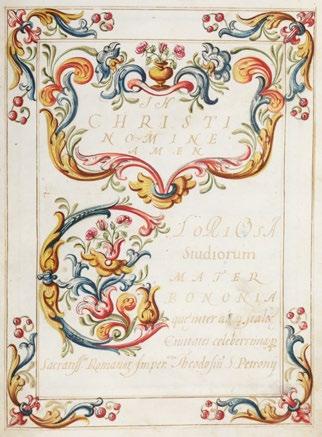 IN
CHRISTI
NOMINE
AMEN
GLORIOSA
Studiorum
MATER
BONONIA
quæ inter
Civitates celeberrima
Sacratiss. Romanor. Imper. Theodosii S. Petronij